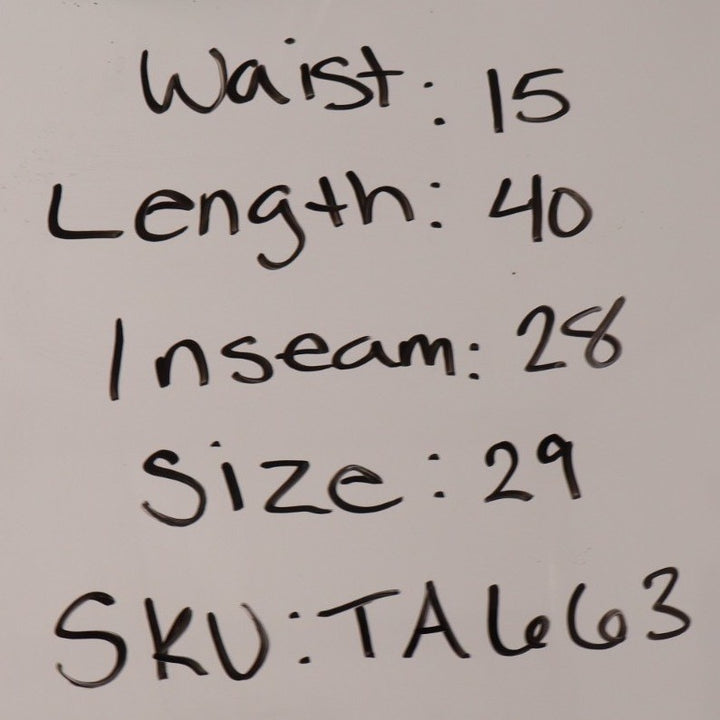 Waist: 15
Length: 40
Inseam: 28
Size: 29
SKU: TA663